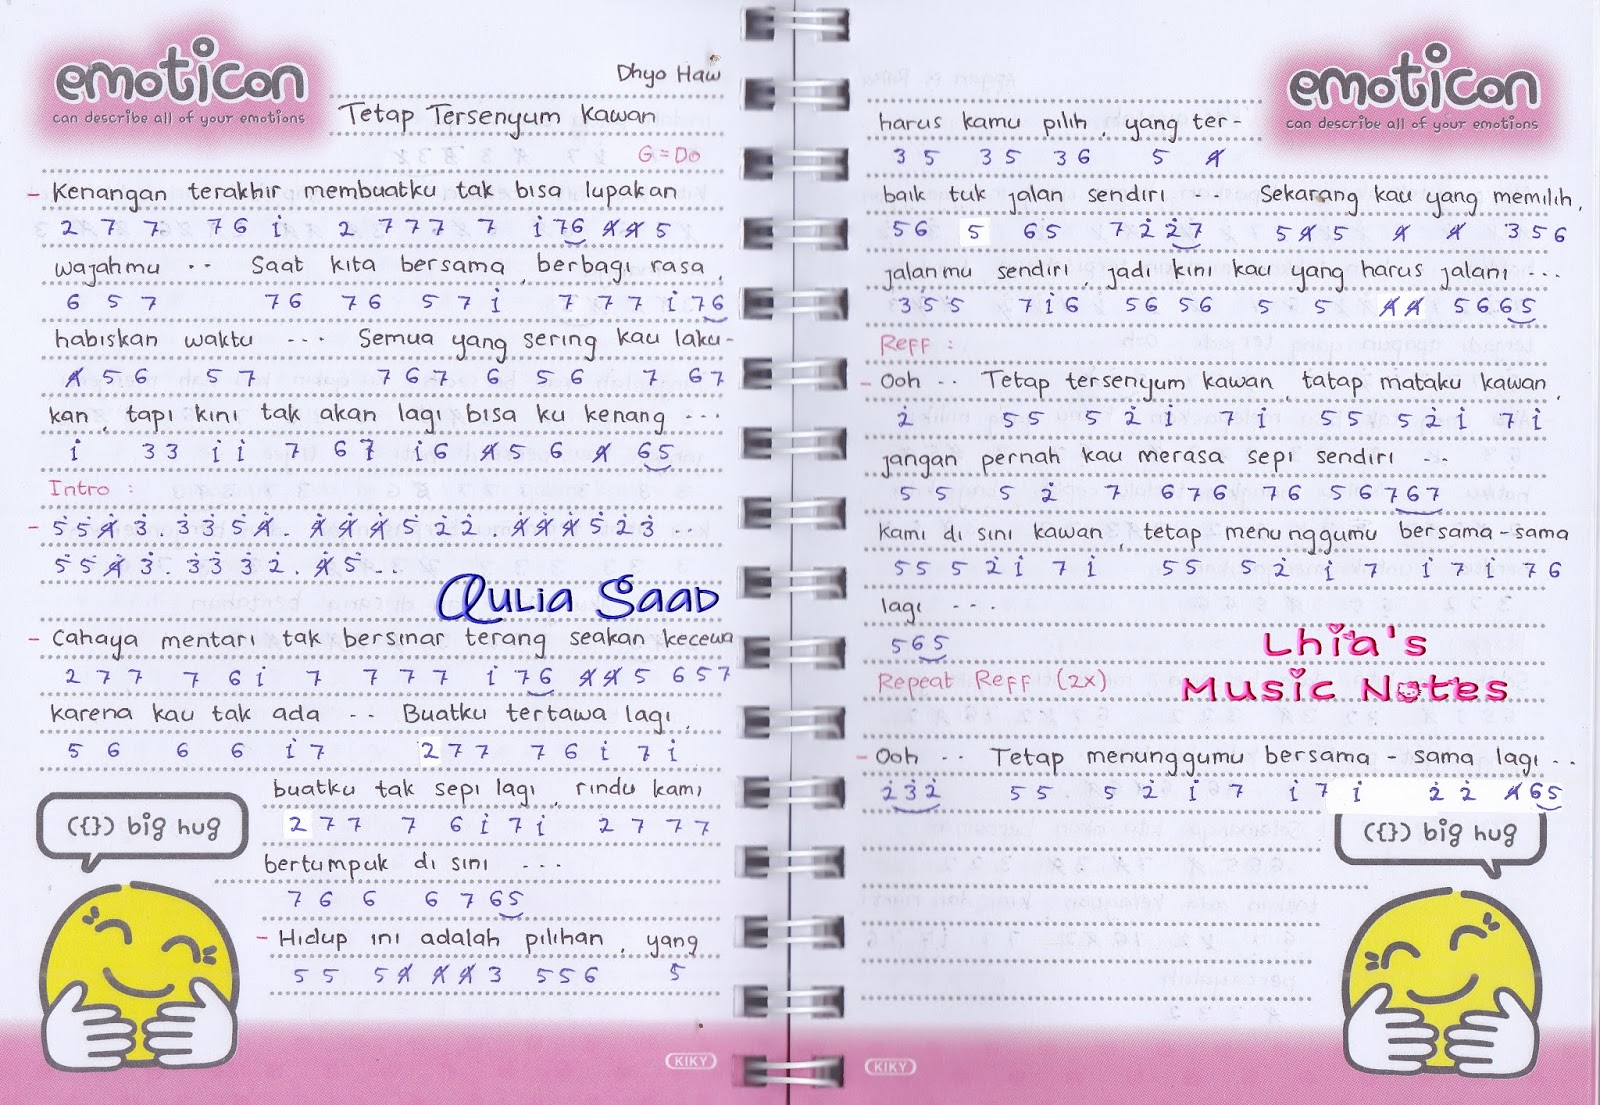 emoticon
can describe all of your emotions
Dhyo Haw
Tetap Tersenyum Kawan
G = Do
- Kenangan terakhir membuatku tak bisa lupakan
2 7 7 7 6 i̇ 2 7 7 7 7 i̇ 7 6 4̸ 4̸ 5
wajahmu .. Saat kita bersama, berbagi rasa,
6 5 7 7 6 7 6 5 7 i̇ 7 7 7 i̇ 7 6
habiskan waktu ... Semua yang sering kau laku-
4̸ 5 6 5 7 7 6 7 6 5 6 7 6 7
kan, tapi kini tak akan lagi bisa ku kenang ...
i̇ 3 3 i̇ i̇ 7 6 7 i̇ 6 4̸ 5 6 4̸ 6 5
Intro :
- 5̇ 5̇ 4̸̇ 3̇ . 3̇ 3̇ 5̇ 4̸̇ . 4̸̇ 4̸̇ 4̸̇ 5̇ 2̇ 2̇ . 4̸̇ 4̸̇ 4̸̇ 5̇ 2̇ 3̇ ...
5̇ 5̇ 4̸̇ 3̇ . 3̇ 3̇ 3̇ 2̇ . 4̸̇ 5̇ ...
Qulia Saad
- Cahaya mentari tak bersinar terang seakan kecewa
2 7 7 7 6 i̇ 7 7 7 7 i̇ 7 6 4̸ 4̸ 5 6 5 7
karena kau tak ada .. Buatku tertawa lagi,
5 6 6 6 i̇ 7 2 7 7 7 6 i̇ 7 i̇
buatku tak sepi lagi, rindu kami
2 7 7 7 6 i̇ 7 i̇ 2 7 7 7
bertumpuk di sini ...
7 6 6 6 7 6 5
- Hidup ini adalah pilihan, yang
5 5 5 4̸ 4̸ 4̸ 3 5 5 6 5
({}) big hug
KIKY
emoticon
can describe all of your emotions
harus kamu pilih, yang ter-
3 5 3 5 3 6 5 4̸
baik tuk jalan sendiri ... Sekarang kau yang memilih,
5 6 5 6 5 7 2̇ 2̇ 7 5 4̸ 5 4̸ 4̸ 3 5 6
jalanmu sendiri, jadi kini kau yang harus jalani ...
3 5 5 7 i̇ 6 5 6 5 6 5 5 4̸ 4̸ 5 6 6 5
Reff :
- Ooh .. Tetap tersenyum kawan, tatap mataku kawan,
2̇ 5 5 5 2̇ i̇ 7 i̇ 5 5 5 2̇ i̇ 7 i̇
jangan pernah kau merasa sepi sendiri ..
5 5 5 2̇ 7 6 7 6 7 6 5 6 7 6 7
kami di sini kawan, tetap menunggumu bersama-sama
5 5 5 2̇ i̇ 7 i̇ 5 5 5 2̇ i̇ 7 i̇ 7 i̇ 7 6
lagi ...
5 6 5
Lhia's
Repeat Reff (2x)
Music Notes
- Ooh .. Tetap menunggumu bersama - sama lagi ..
2̇ 3̇ 2̇ 5 5 5 2̇ i̇ 7 i̇ 7 i̇ 2̇ 2̇ 4̸ 6 5
({}) big hug
KIKY